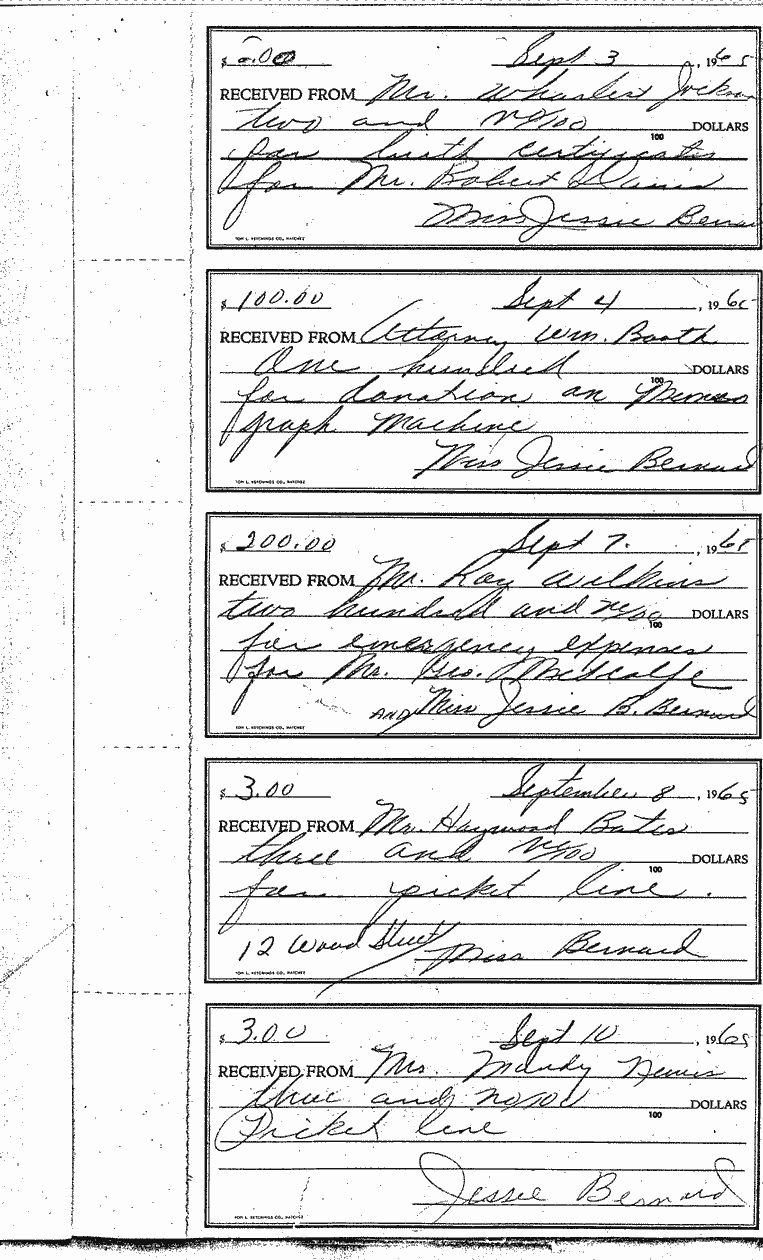 $ 2.00 Sept 3, 1965
RECEIVED FROM Mr. Wharlest Jackson
two and no/100 DOLLARS
100
for birth certificates
for Mr. Robert
Miss Jessie Bernard
TOM L. KETCHINGS CO., NATCHEZ
$ 100.00 Sept 4, 1965
RECEIVED FROM Attorney Wm. Booth
One hundred DOLLARS
100
for donation on Mimeo
graph Machine
Miss Jessie Bernard
TOM L. KETCHINGS CO., NATCHEZ
$ 200.00 Sept 7. , 1965
RECEIVED FROM Mr. Roy Wilkins
two hundred and no/00 DOLLARS
100
for emergency expenses
for Mr. Geo. Metcalfe
AND Miss Jessie B. Bernard
TOM L. KETCHINGS CO., NATCHEZ
$ 3.00 September 8, 1965
RECEIVED FROM Mr. Haywood Bates
three and no/100 DOLLARS
100
for picket line.
12 Wood Street Miss Bernard
TOM L. KETCHINGS CO., NATCHEZ
$ 3.00 Sept 10, 1965
RECEIVED FROM Mrs. Mandy
three and no/00 DOLLARS
100
Picket line
Jessie Bernard
TOM L. KETCHINGS CO., NATCHEZ